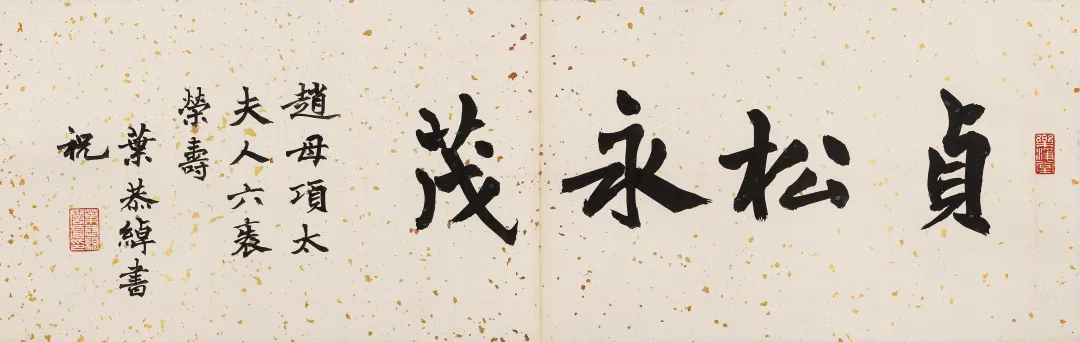 貞松永茂
趙母項太
夫人六袠
榮壽
葉恭綽書
祝